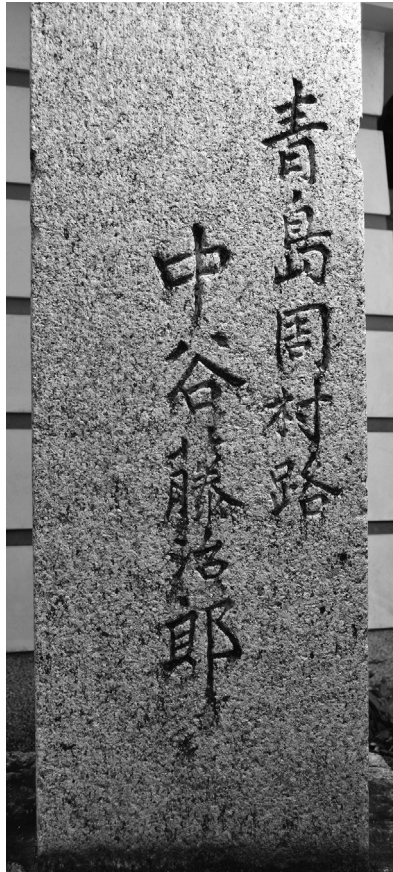 青島周村路
中谷藤治郎